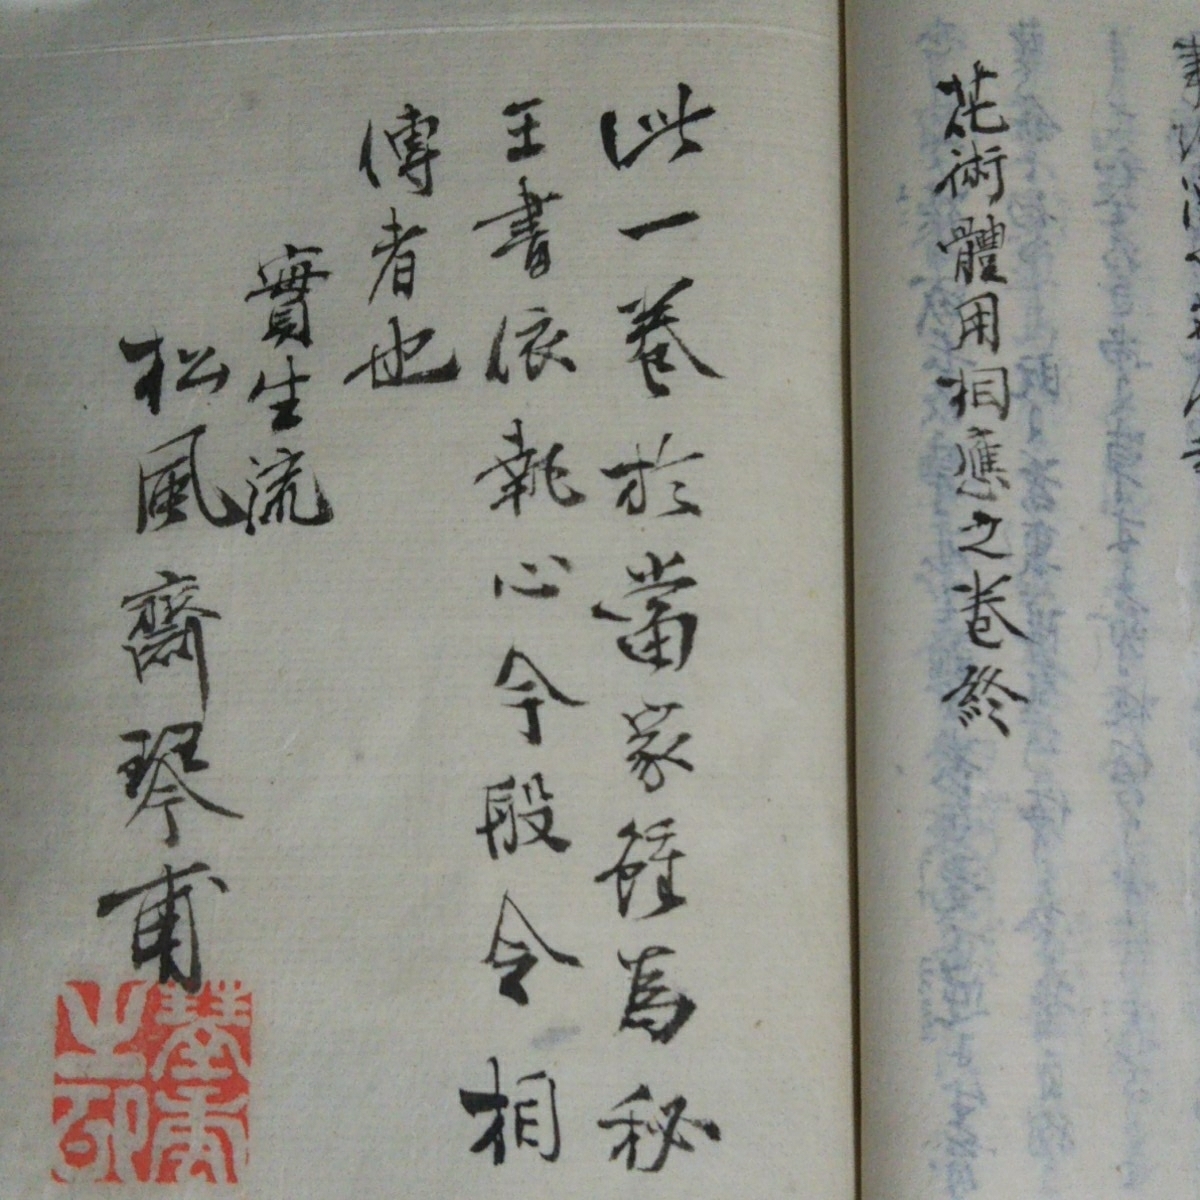 花術體用相應之卷終
此一卷於當家雖為秘
王書依執心今般令相
傳者也
實生流
松風齋琴甫
琴甫之印